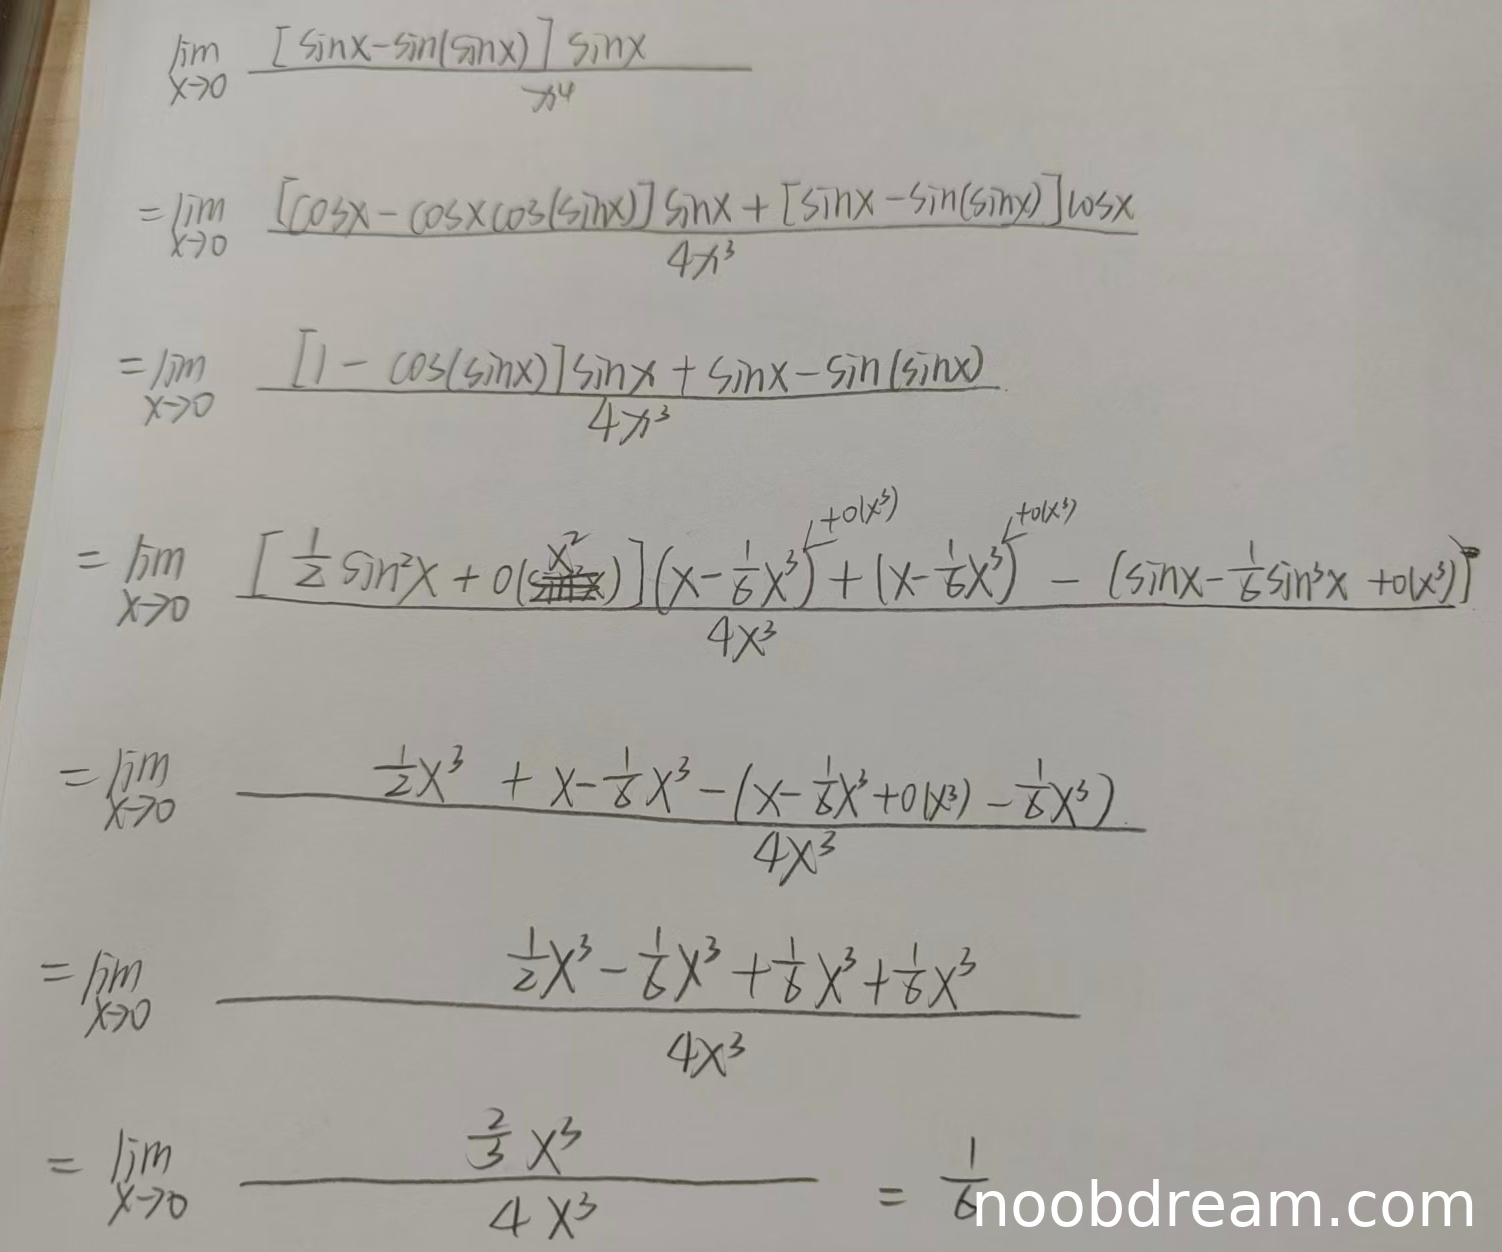 lim x→0 [sinx-sin(sinx)] sinx / x⁴
= lim x→0 [cosx - cosxcos(sinx)] sinx + [sinx - sin(sinx)] cosx / 4x³
= lim x→0 [1 - cos(sinx)] sinx + sinx - sin(sinx) / 4x³
= lim x→0 [1/2 sin²x + o(x²)] (x - 1/6 x³ + o(x³)) + (x - 1/6 x³ + o(x³)) - (sinx - 1/6 sin³x + o(x³)) / 4x³
= lim x→0 1/2 x³ + x - 1/6 x³ - (x - 1/6 x³ + o(x³) - 1/6 x³) / 4x³
= lim x→0 1/2 x³ - 1/6 x³ + 1/6 x³ + 1/6 x³ / 4x³
= lim x→0 2/3 x³ / 4x³ = 1/6
noobdream.com